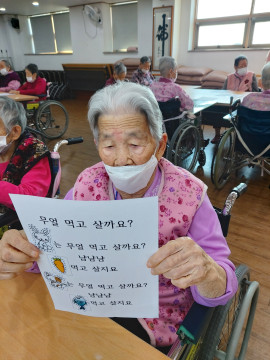 무얼 먹고 살까요?
는 무얼 먹고 살까요?
냠냠냠
먹고 살지요
는 무얼 먹고 살까요?
냠냠냠
먹고 살지요